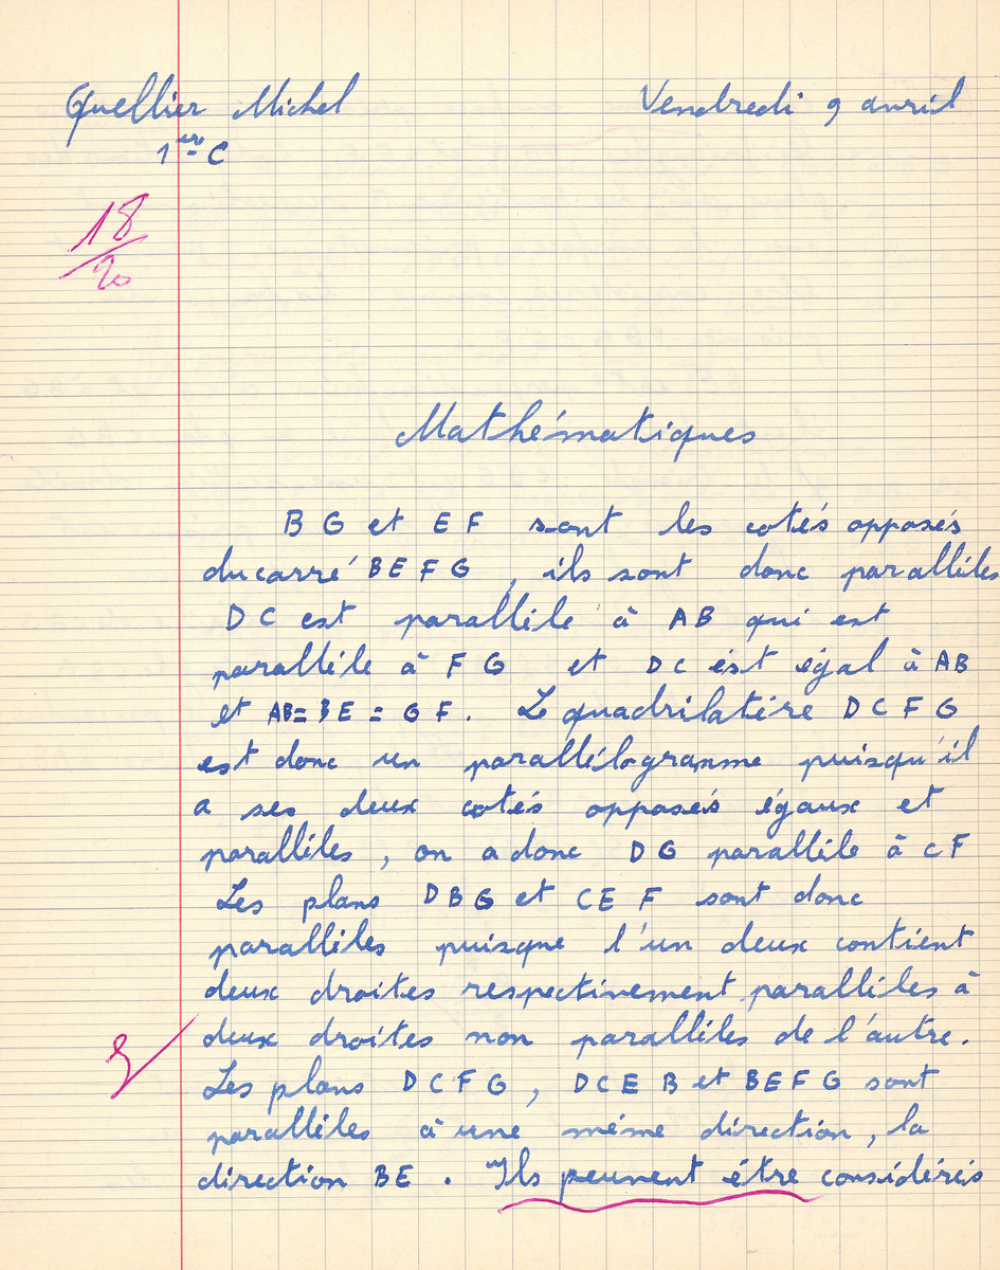 Quellier Michel Vendredi 9 avril
1ère C
18/20
Mathématiques
BG et EF sont les cotés opposés
du carré BEFG, ils sont donc parallèles
DC est parallèle à AB qui est
parallèle à FG et DC est égal à AB
et AB=BE=GF. Le quadrilatère DCFG
est donc un parallélogramme puisqu'il
a ses deux cotés opposés égaux et
parallèles, on a donc DG parallèle à CF
Les plans DBG et CEF sont donc
parallèles puisque l'un deux contient
deux droites respectivement parallèles à
deux droites non parallèles de l'autre.
Les plans DCFG, DCEB et BEFG sont
parallèles à une même direction, la
direction BE. Ils peuvent être considérés